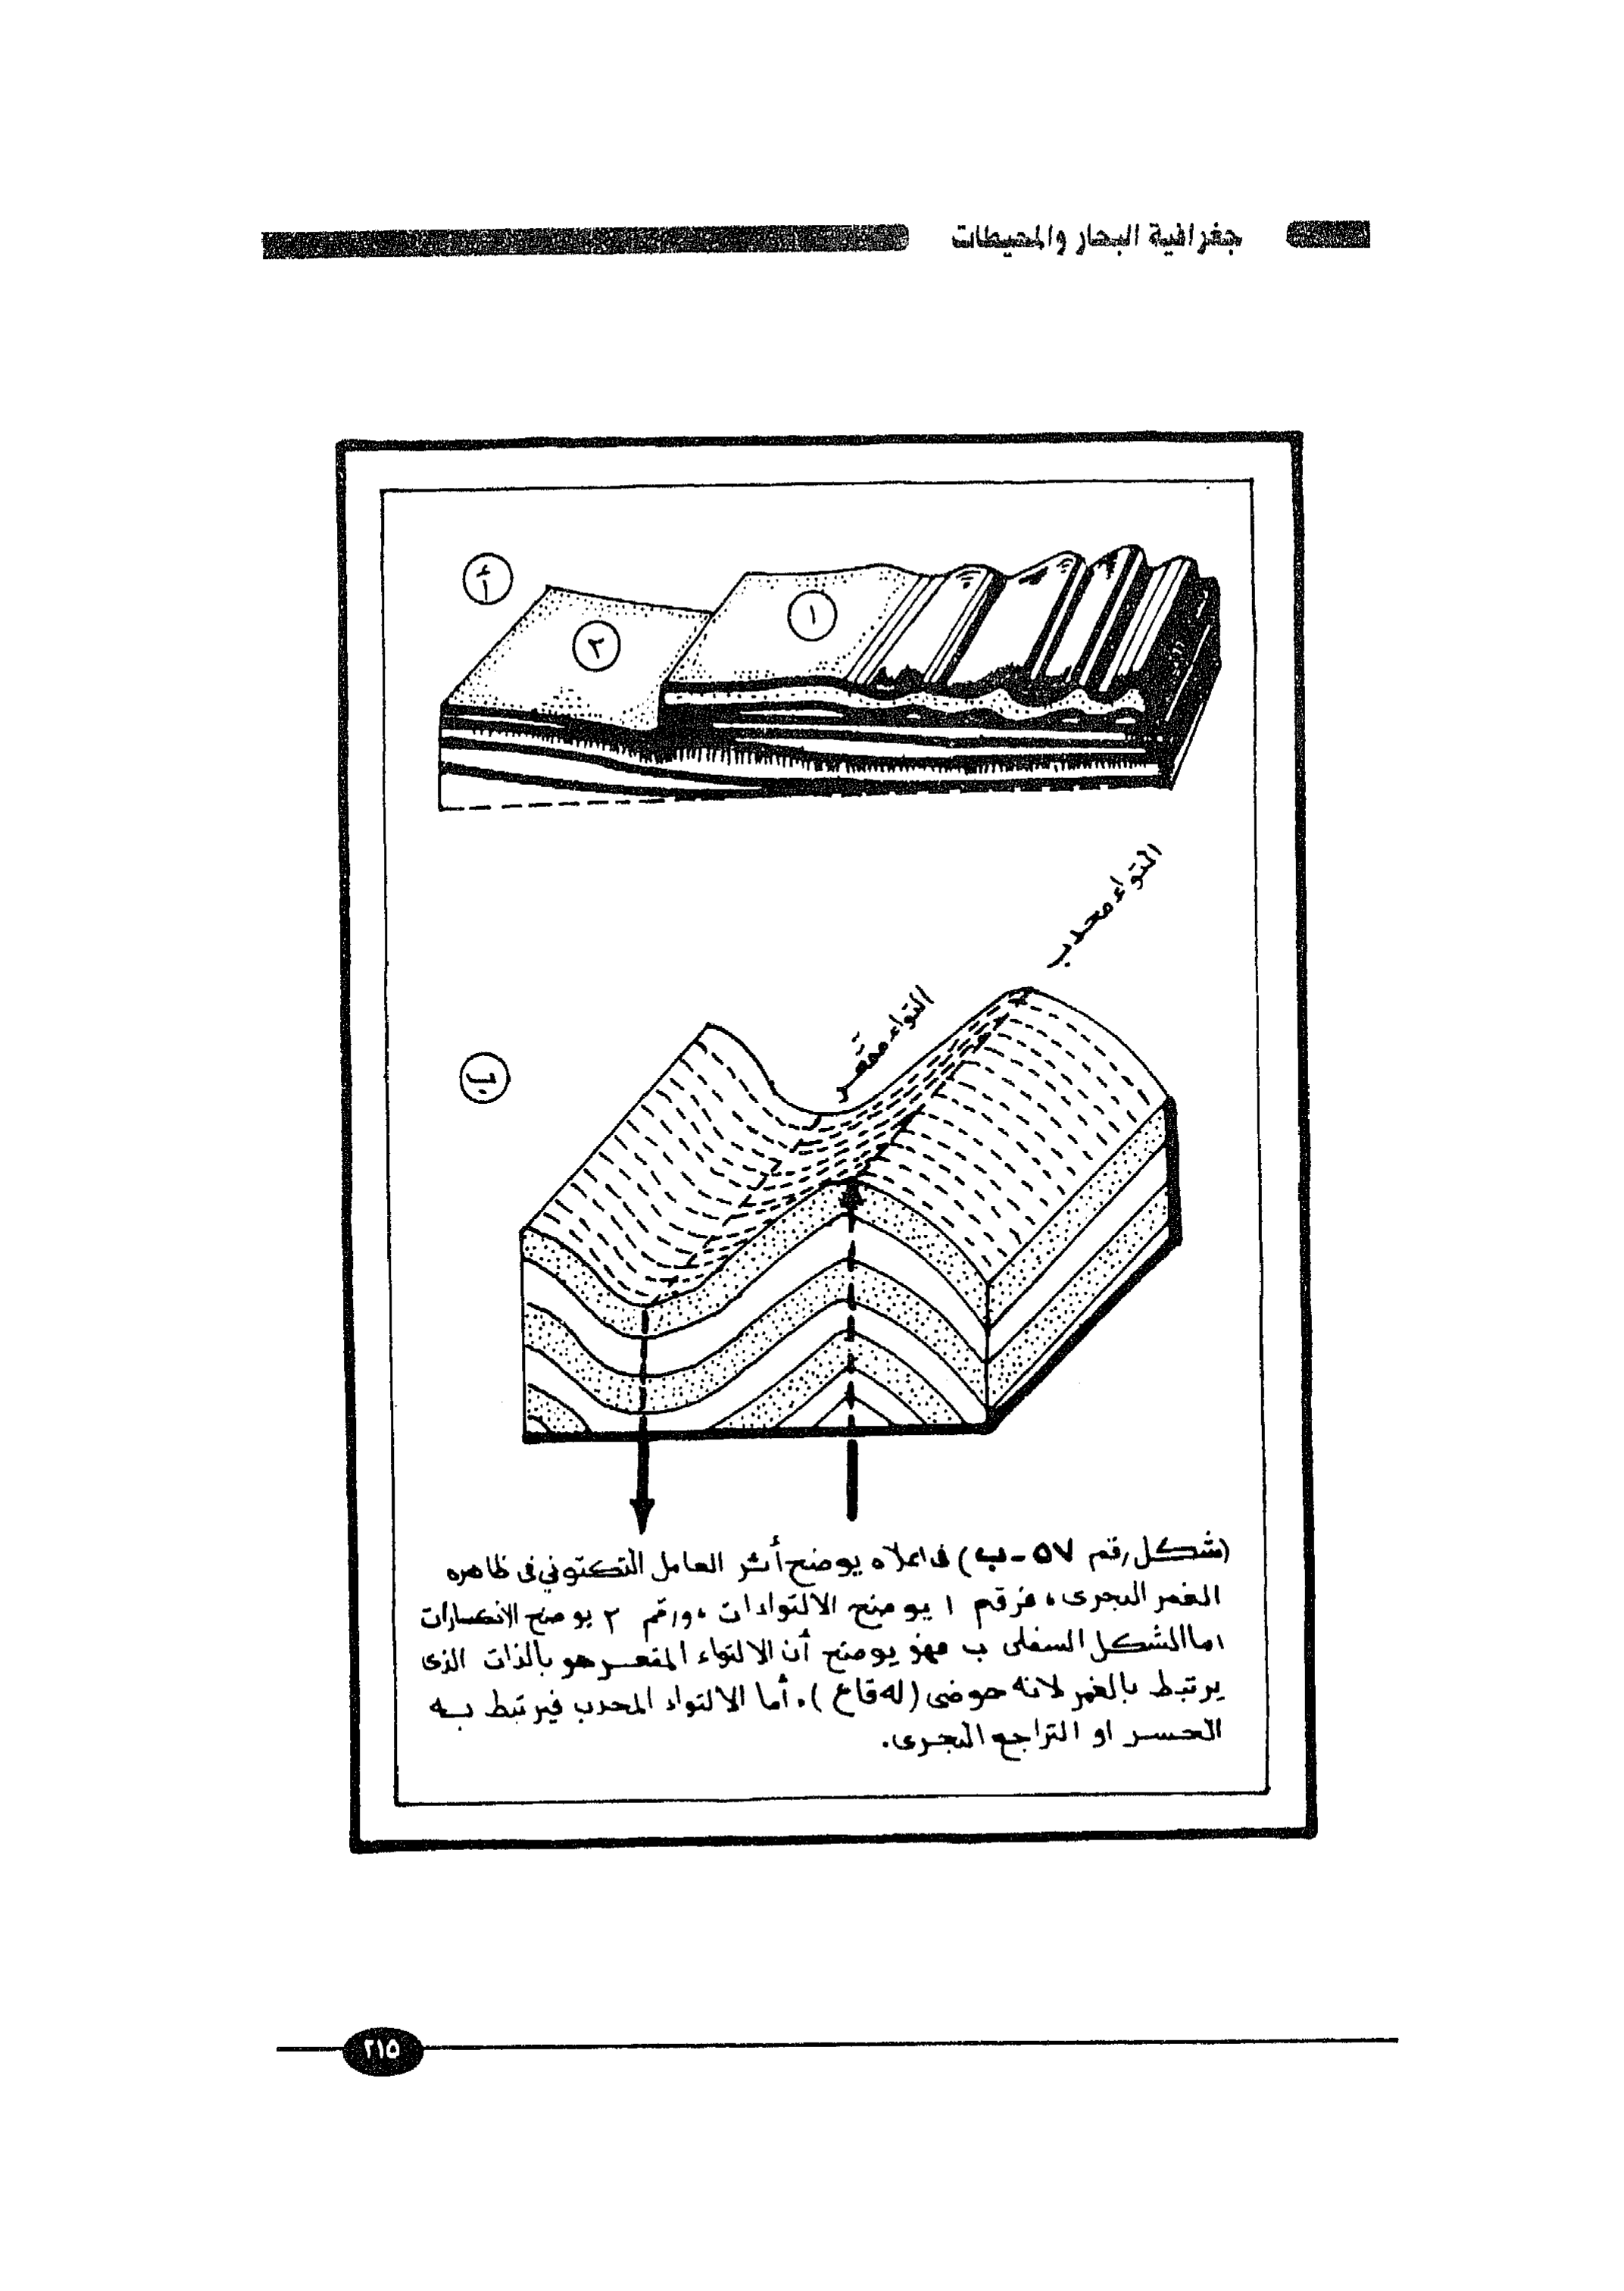 جغرافية البحار والمحيطات
أ
١
٢
التواء محدب
التواء مقعّر
ب
(شكل رقم ٥٧ - ب) فى اعلاه يوضح أثر العامل التكتونى فى ظاهره
الغمر البحرى، فرقم ١ يوضح الالتواءات، ورقم ٢ يوضح الانكسارات
اما الشكل السفلى ب فهو يوضح أن الالتواء المقعر هو بالذات الذى
يرتبط بالغمر لانه حوضى (له قاع). أما الالتواء المحدب فيرتبط به
الحسر او التراجع البحرى.
٢١٥